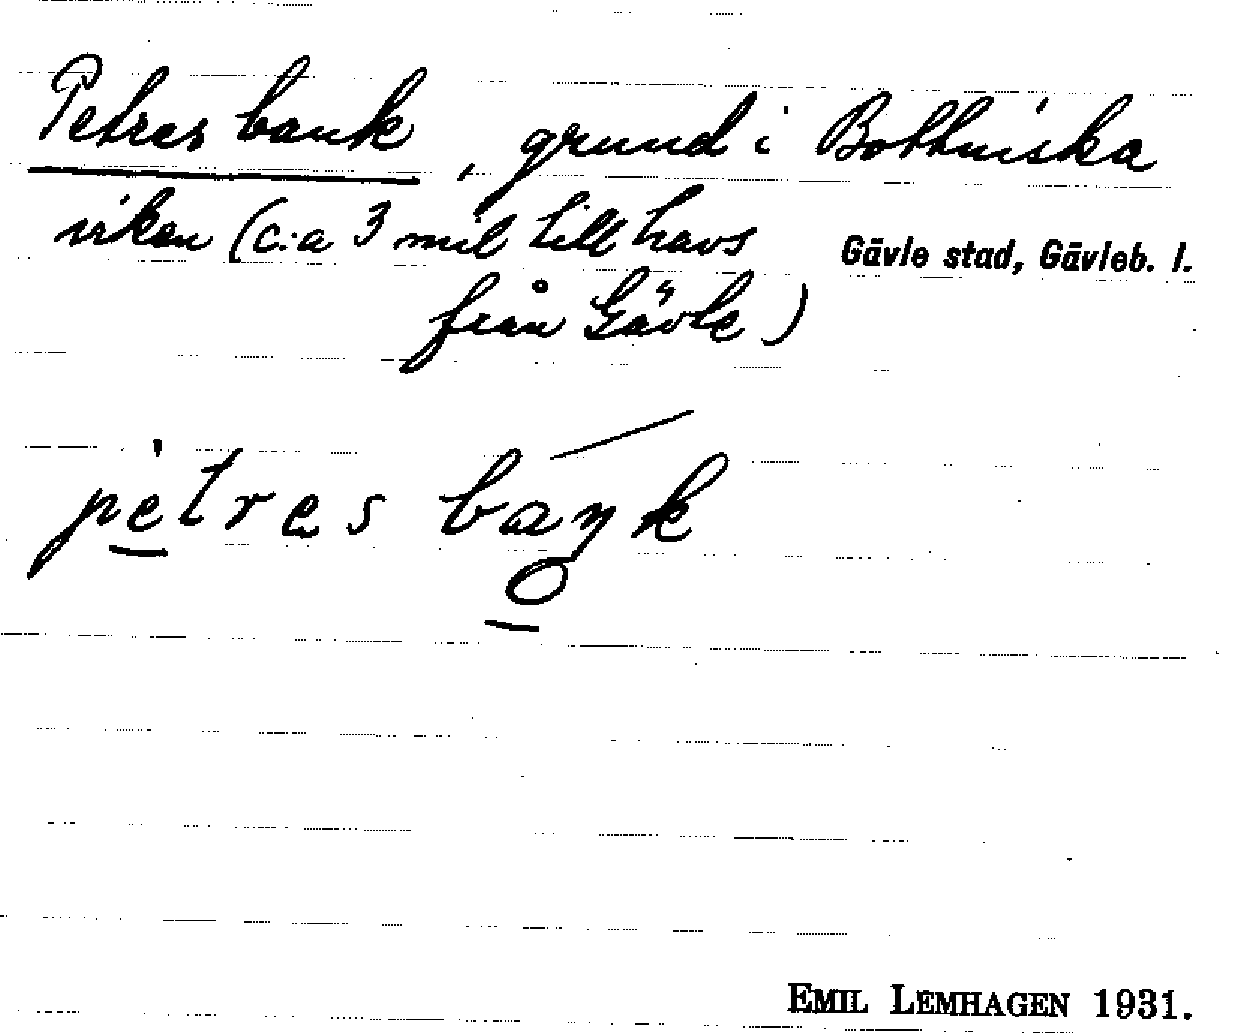 Petres bank, grund i Bottniska
viken (c:a 3 mil till havs
Gävle stad, Gävleb. l.
från Gävle)
petres baŋk
EMIL LEMHAGEN 1931.